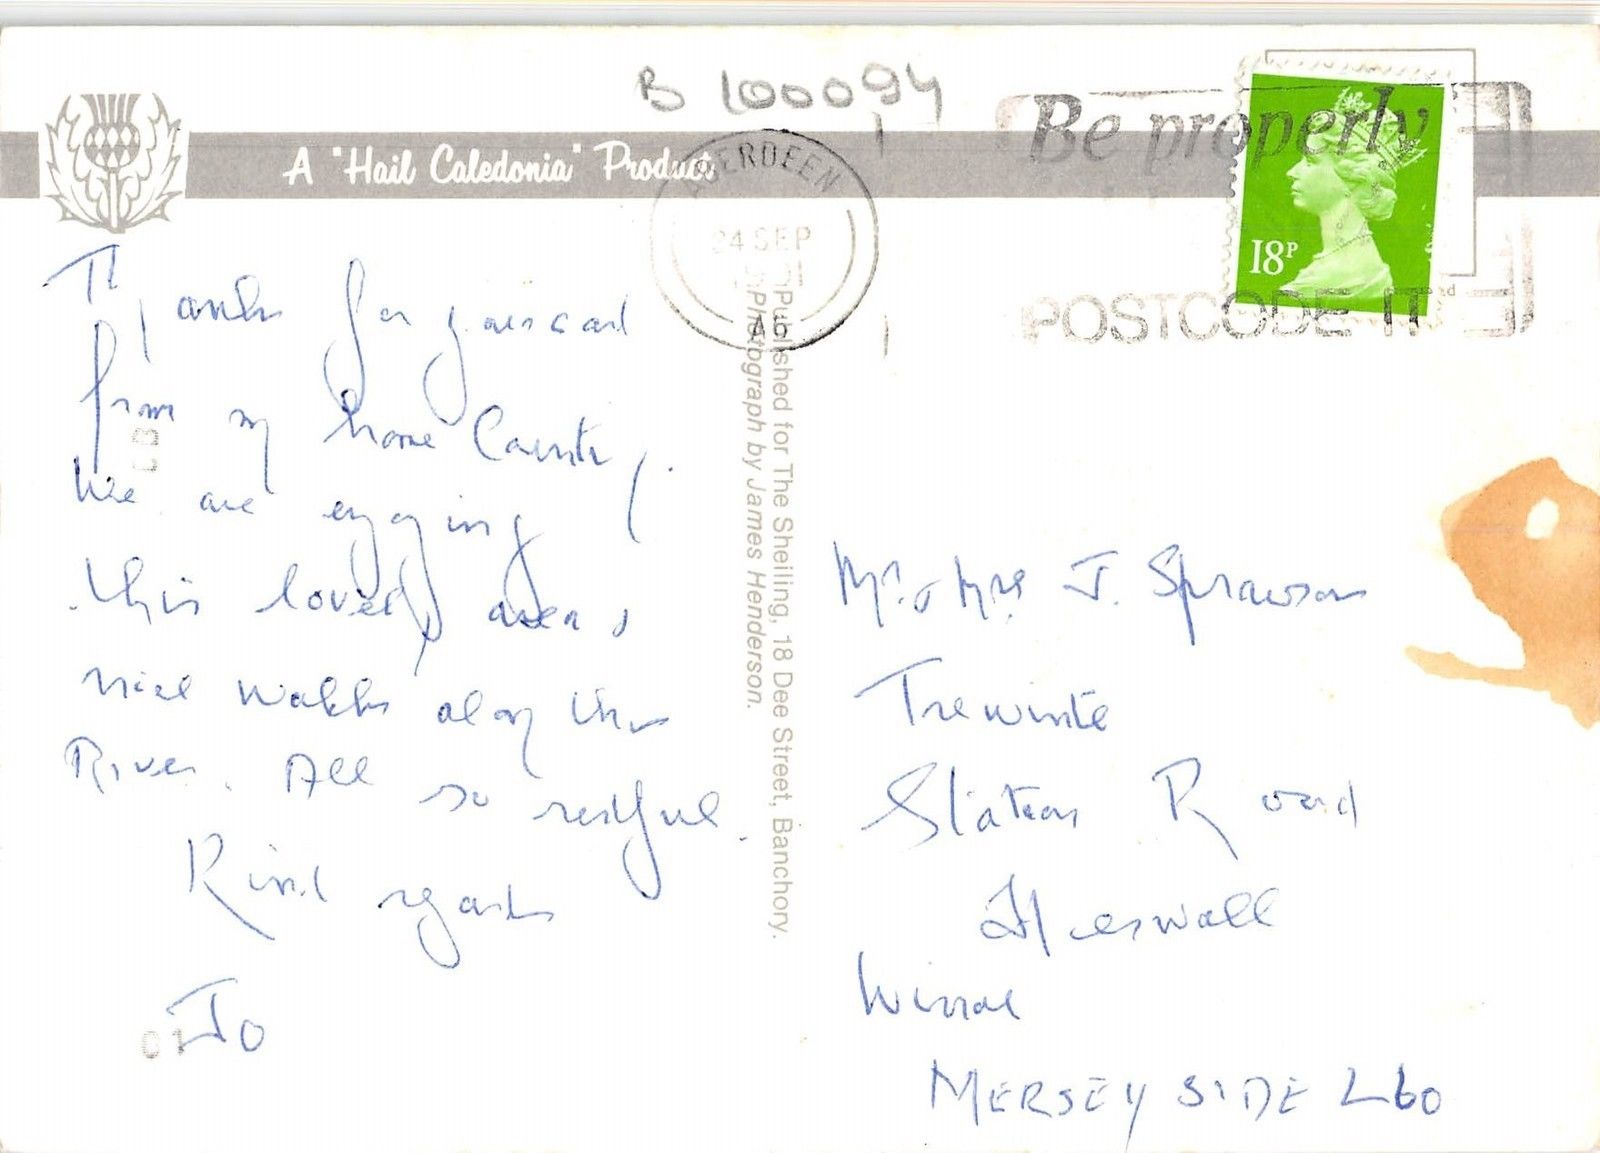 B 100094
A "Hail Caledonia" Product
ABERDEEN
24 SEP
Be properly
POSTCODE IT
18P
Thanks for your card
from my home County.
We are enjoying
this lovely area &
nice walks along the
River. All so restful.
Kind regards
Jo
01
Published for The Sheiling, 18 Dee Street, Banchory.
Photograph by James Henderson.
Mr. & Mrs J. Sprawson
Trewinte
Station Road
Heswall
Wirral
MERSEYSIDE L60